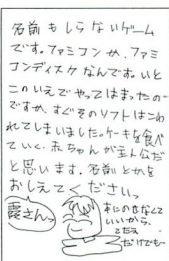 名前もしらないゲーム
です。ファミコンか、ファミ
コンディスクなんです。いと
このいえでやってはまったの
ですが、すぐそのソフトはこわ
れてしまいました。ケーキを食べ
ていく、赤ちゃんが主人公だ
と思います。名前とかを
おしえてくださいっ
霞さんっ
のせなくて
いいから、
こたえ
だけでも…